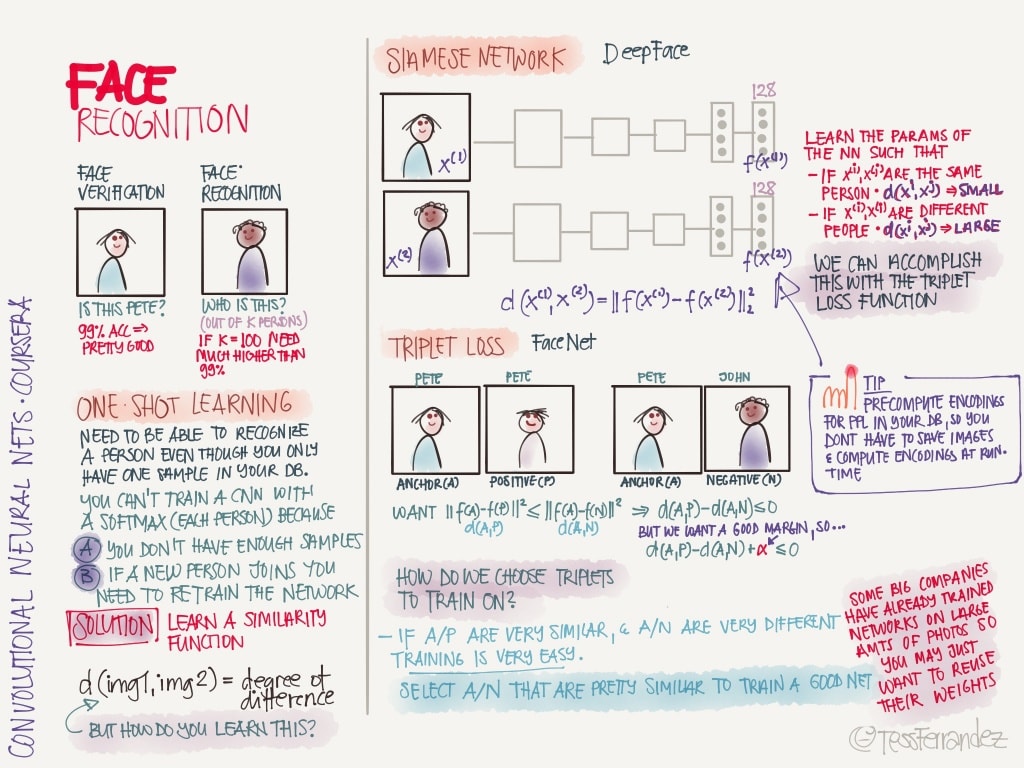 CONVOLUTIONAL NEURAL NETS · COURSERA
FACE
RECOGNITION
FACE
VERIFICATION
IS THIS PETE?
99% ACC ⇒
PRETTY GOOD
FACE·
RECOGNITION
WHO IS THIS?
(OUT OF K PERSONS)
IF K=100 NEED
MUCH HIGHER THAN
99%
ONE-SHOT LEARNING
NEED TO BE ABLE TO RECOGNIZE
A PERSON EVEN THOUGH YOU ONLY
HAVE ONE SAMPLE IN YOUR DB.
YOU CAN'T TRAIN A CNN WITH
A SOFTMAX (EACH PERSON) BECAUSE
A YOU DON'T HAVE ENOUGH SAMPLES
B IF A NEW PERSON JOINS YOU
NEED TO RETRAIN THE NETWORK
SOLUTION LEARN A SIMILARITY
FUNCTION
d(img1, img2) = degree of
difference
BUT HOW DO YOU LEARN THIS?
SIAMESE NETWORK DeepFace
x⁽¹⁾
128
f(x⁽¹⁾)
x⁽²⁾
128
f(x⁽²⁾)
d(x⁽¹⁾, x⁽²⁾) = ‖f(x⁽¹⁾) - f(x⁽²⁾)‖₂²
LEARN THE PARAMS OF
THE NN SUCH THAT
- IF x⁽ⁱ⁾, x⁽ʲ⁾ ARE THE SAME
PERSON · d(xⁱ, xʲ) ⇒ SMALL
- IF x⁽ⁱ⁾, x⁽ʲ⁾ ARE DIFFERENT
PEOPLE · d(xⁱ, xʲ) ⇒ LARGE
WE CAN ACCOMPLISH
THIS WITH THE TRIPLET
LOSS FUNCTION
TIP
PRECOMPUTE ENCODINGS
FOR PPL IN YOUR DB, SO YOU
DONT HAVE TO SAVE IMAGES
& COMPUTE ENCODINGS AT RUN-
TIME
TRIPLET LOSS FaceNet
PETE PETE PETE JOHN
ANCHOR (A) POSITIVE (P) ANCHOR (A) NEGATIVE (N)
WANT ‖f(A)-f(P)‖² ≤ ‖f(A)-f(N)‖² ⇒ d(A,P)-d(A,N) ≤ 0
d(A,P) d(A,N)
BUT WE WANT A GOOD MARGIN, SO...
d(A,P)-d(A,N)+α ≤ 0
HOW DO WE CHOOSE TRIPLETS
TO TRAIN ON?
- IF A/P ARE VERY SIMILAR, & A/N ARE VERY DIFFERENT
TRAINING IS VERY EASY.
SELECT A/N THAT ARE PRETTY SIMILAR TO TRAIN A GOOD NET
SOME BIG COMPANIES
HAVE ALREADY TRAINED
NETWORKS ON LARGE
AMTS OF PHOTOS SO
YOU MAY JUST
WANT TO REUSE
THEIR WEIGHTS
@TessFerrandez